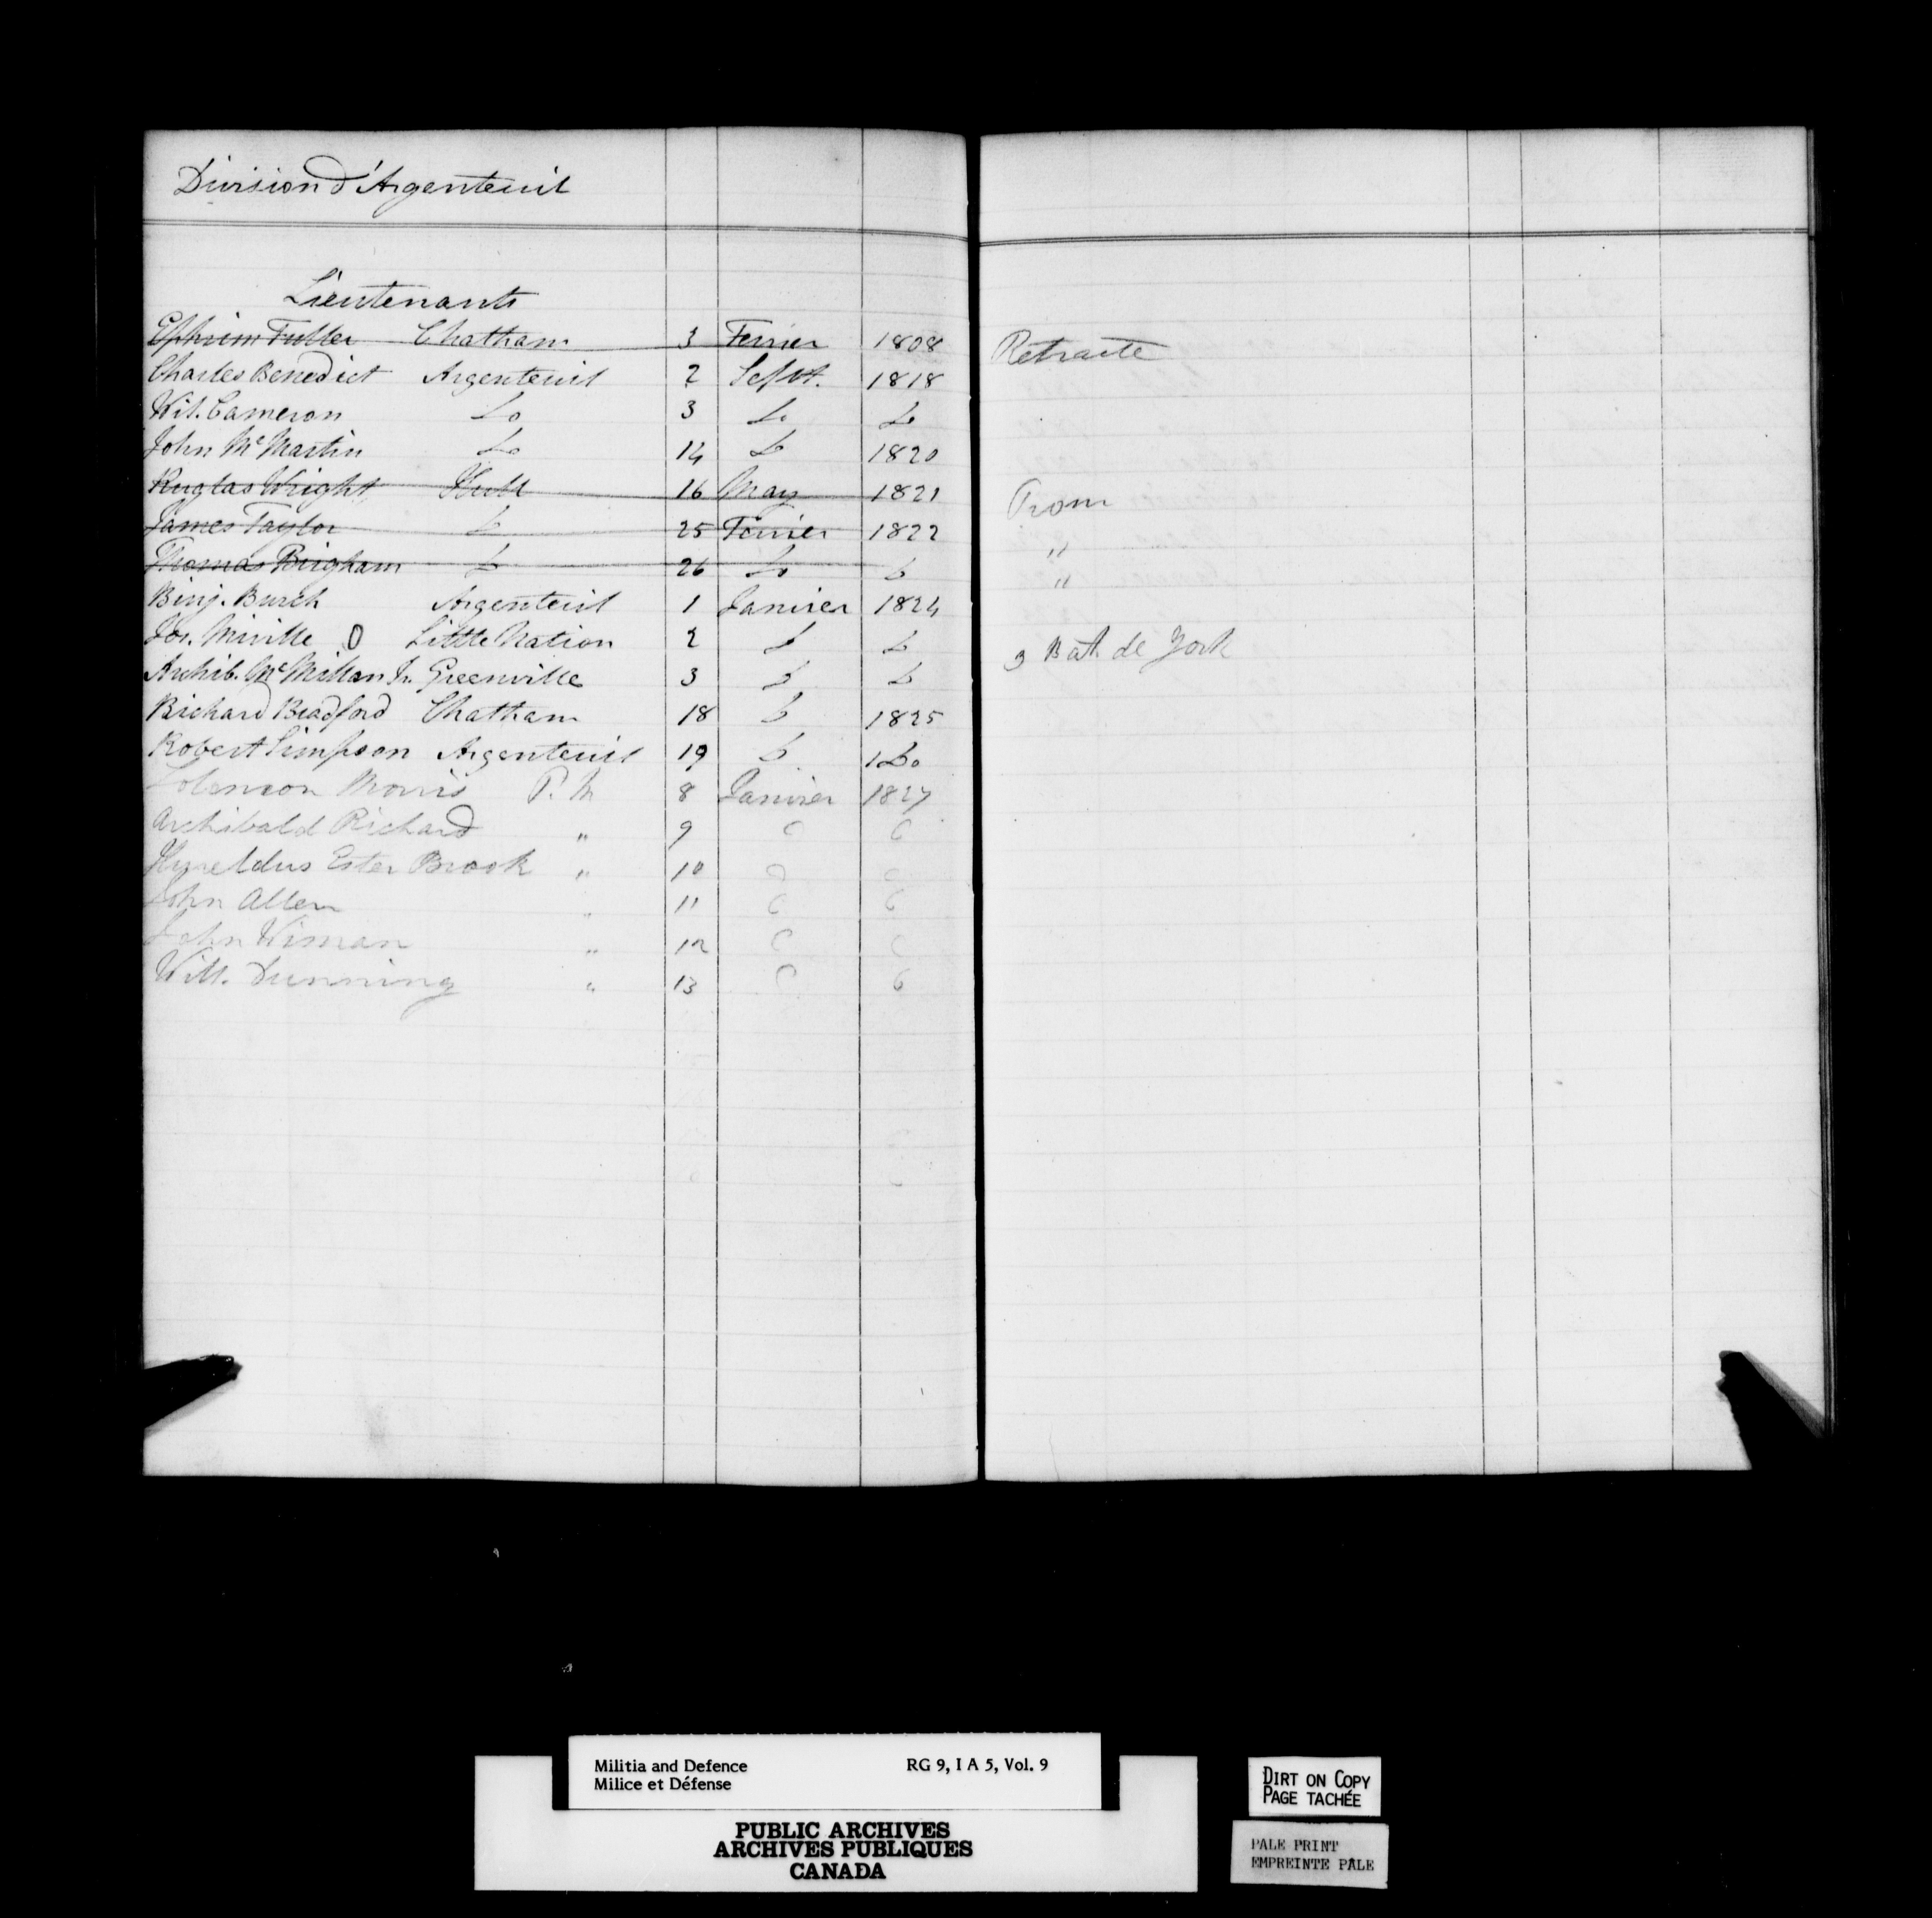 Division d'Argenteuil
Lieutenants
Ephrim Fuller Chatham 3 Fevrier 1808 Retraite
Charles Benedict Argenteuil 2 Sept. 1818
Wil. Cameron Do 3 Do Do
John McMartin Do 14 Do 1820
Ruglas Wright Hull 16 May 1821 Prom
James Taylor Do 25 Fevrier 1822 "
Thomas Brigham Do 26 Do Do "
Binj. Burch Argenteuil 1 Janvier 1824
Jos. Miville O Little Nation 2 Do Do 3 Bat. de York
Archib. McMillan Jr. Greenville 3 Do Do
Richard Bradford Chatham 18 Do 1825
Robert Simpson Argenteuil 19 Do 1Do
Solomon Morris P. M 8 Janvier 1827
Archibald Richard " 9
Ester Brook " 10
John Allen " 11
John Wiman " 12
Will. Dunning " 13
Militia and Defence RG 9, I A 5, Vol. 9
Milice et Défense
PUBLIC ARCHIVES
ARCHIVES PUBLIQUES
CANADA
DIRT ON COPY
PAGE TACHÉE
PALE PRINT
EMPREINTE PÂLE